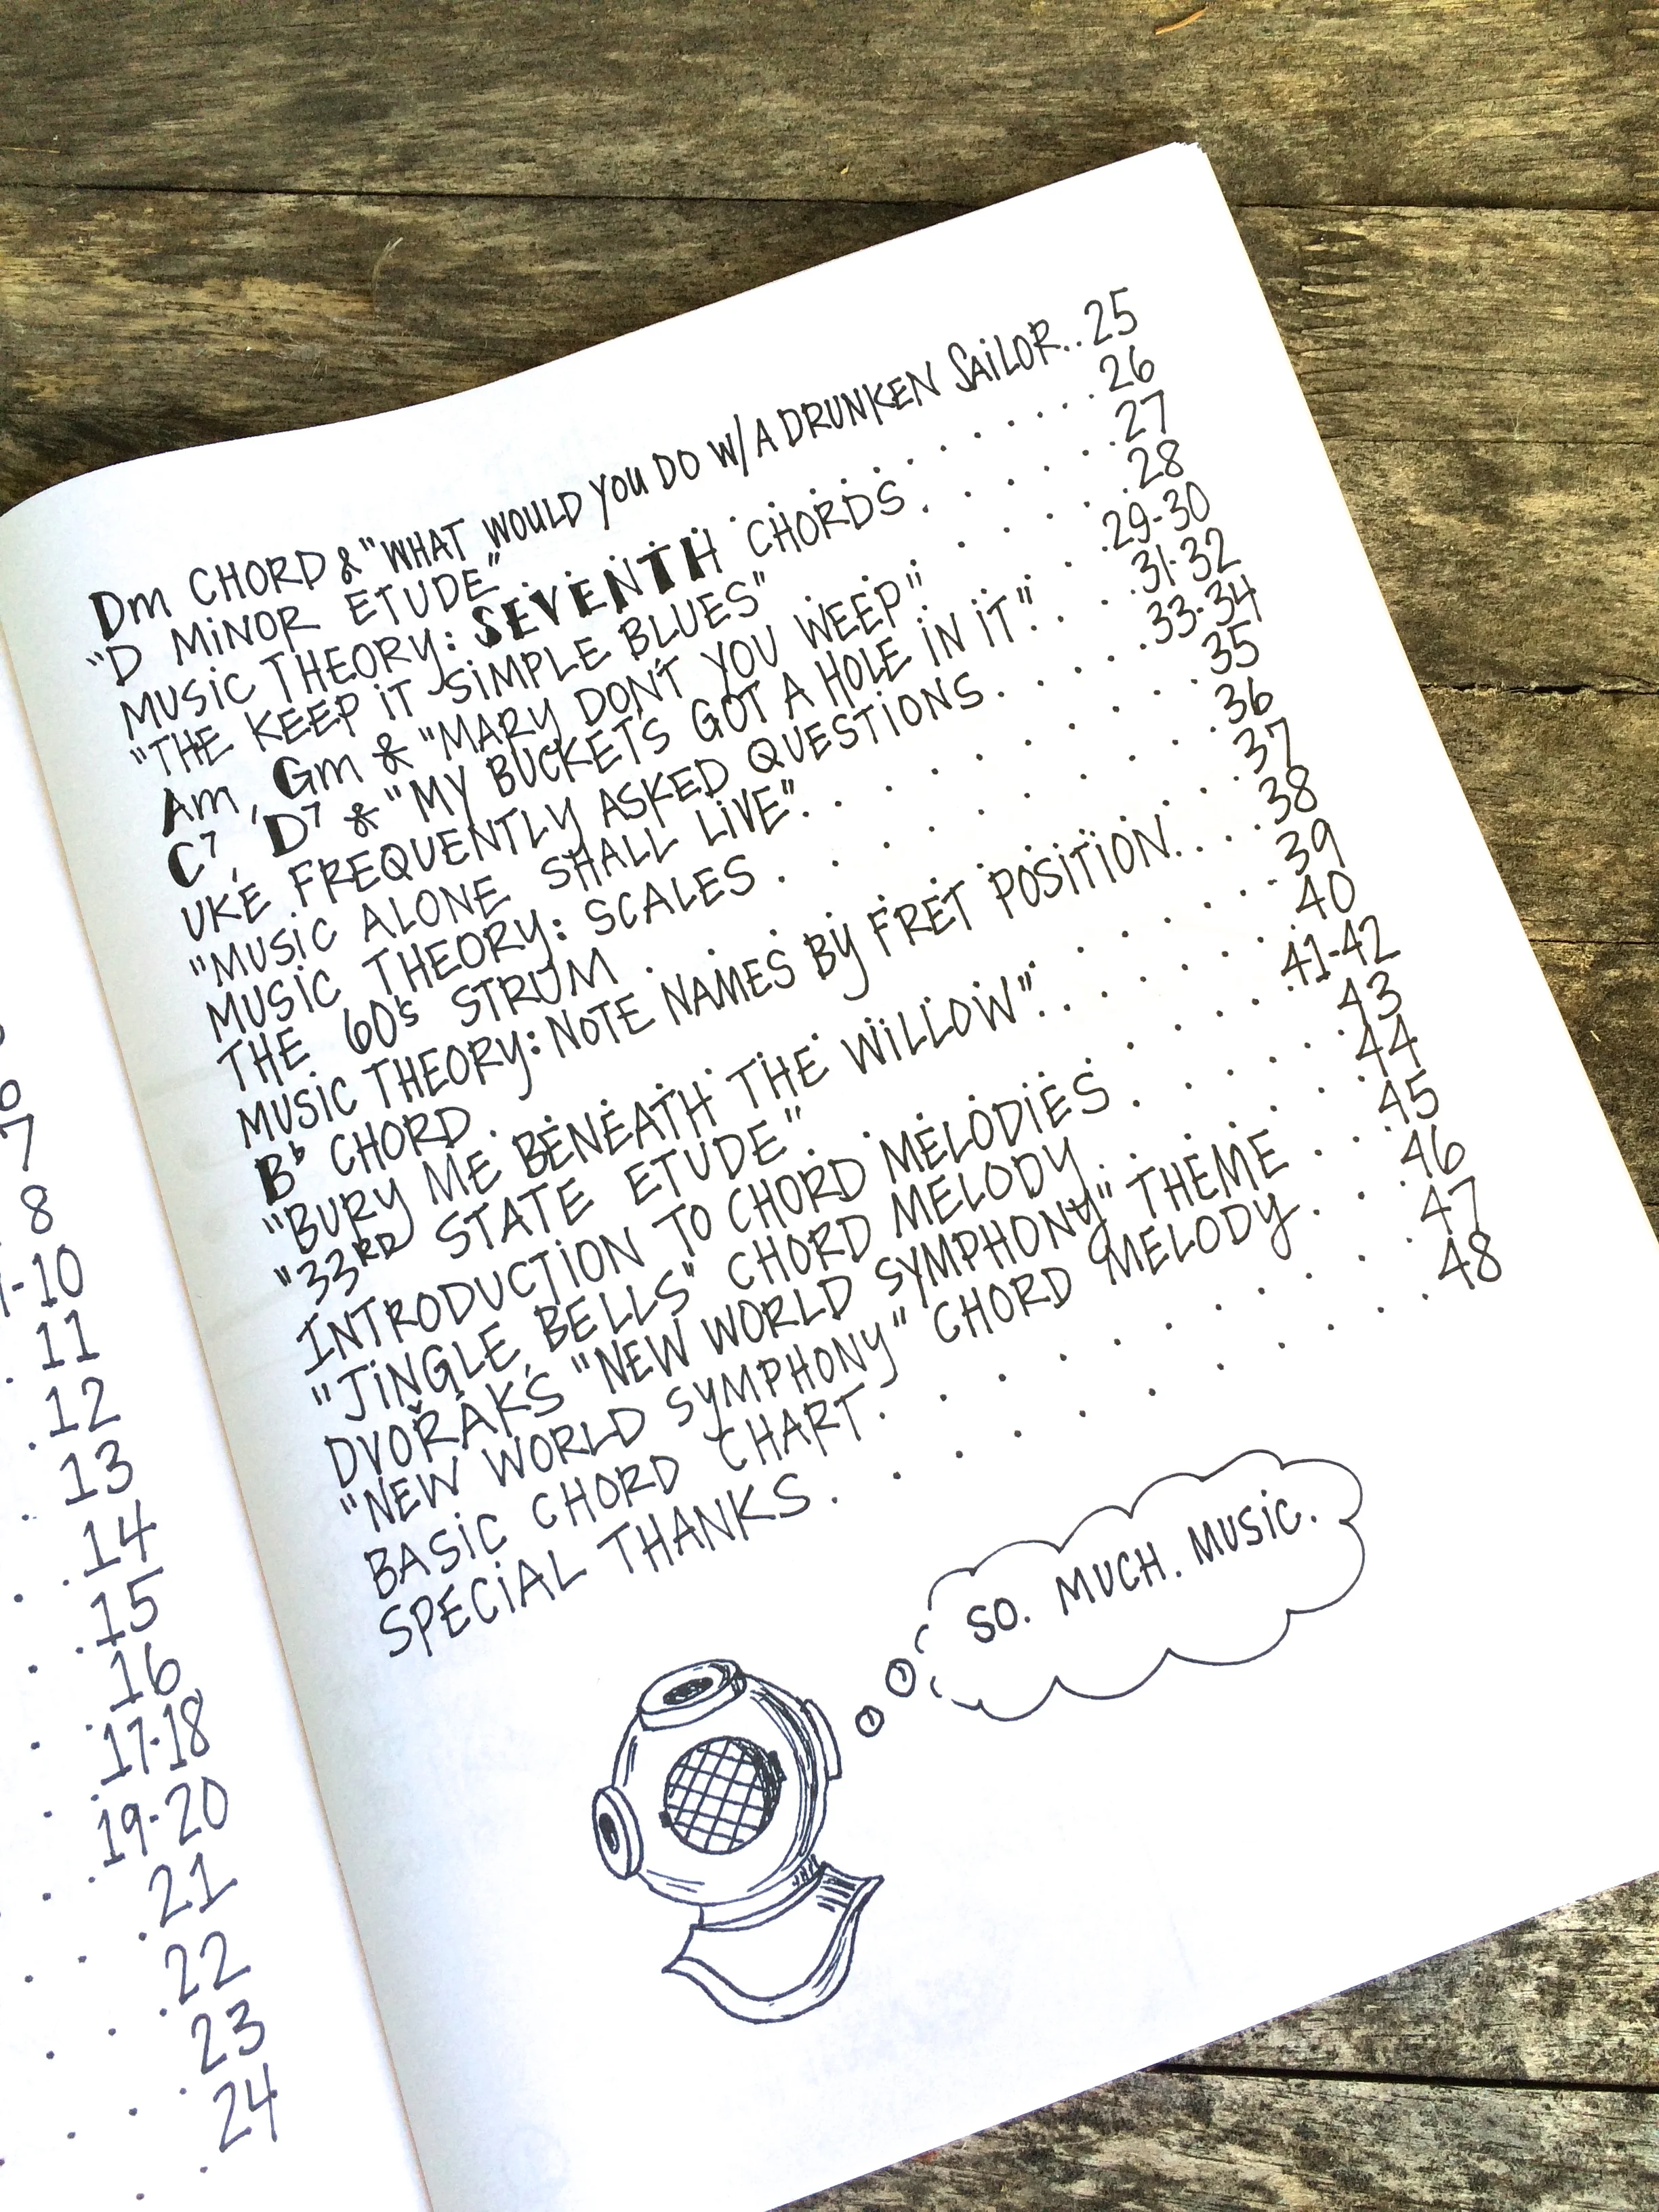 7
8
-10
11
12
13
14
15
16
17-18
19-20
21
22
23
24
Dm CHORD & "WHAT WOULD YOU DO W/A DRUNKEN SAILOR..25
"D MINOR ETUDE" . . . . . . . . 26
MUSIC THEORY: SEVENTH CHORDS . . . . 27
"THE KEEP IT SIMPLE BLUES" . . . . 28
Am, Gm & "MARY DON'T YOU WEEP" . . . 29-30
C7, D7 & "MY BUCKET'S GOT A HOLE IN IT" . . . 31-32
UKE FREQUENTLY ASKED QUESTIONS . . . . 33-34
"MUSIC ALONE SHALL LIVE" . . . . . . 35
MUSIC THEORY: SCALES . . . . . . 36
THE 60's STRUM . . . . . . . . 37
MUSIC THEORY: NOTE NAMES BY FRET POSITION . . . . 38
B♭ CHORD . . . . . . . . . 39
"BURY ME BENEATH THE WILLOW" . . . . . 40
"33RD STATE ETUDE" . . . . . . . 41-42
INTRODUCTION TO CHORD MELODIES . . . . 43
"JINGLE BELLS" CHORD MELODY . . . . . 44
DVOŘÁK'S "NEW WORLD SYMPHONY" THEME . . . 45
"NEW WORLD SYMPHONY" CHORD MELODY . . . 46
BASIC CHORD CHART . . . . . . . . 47
SPECIAL THANKS . . . . . . . . . 48
SO. MUCH. MUSIC.